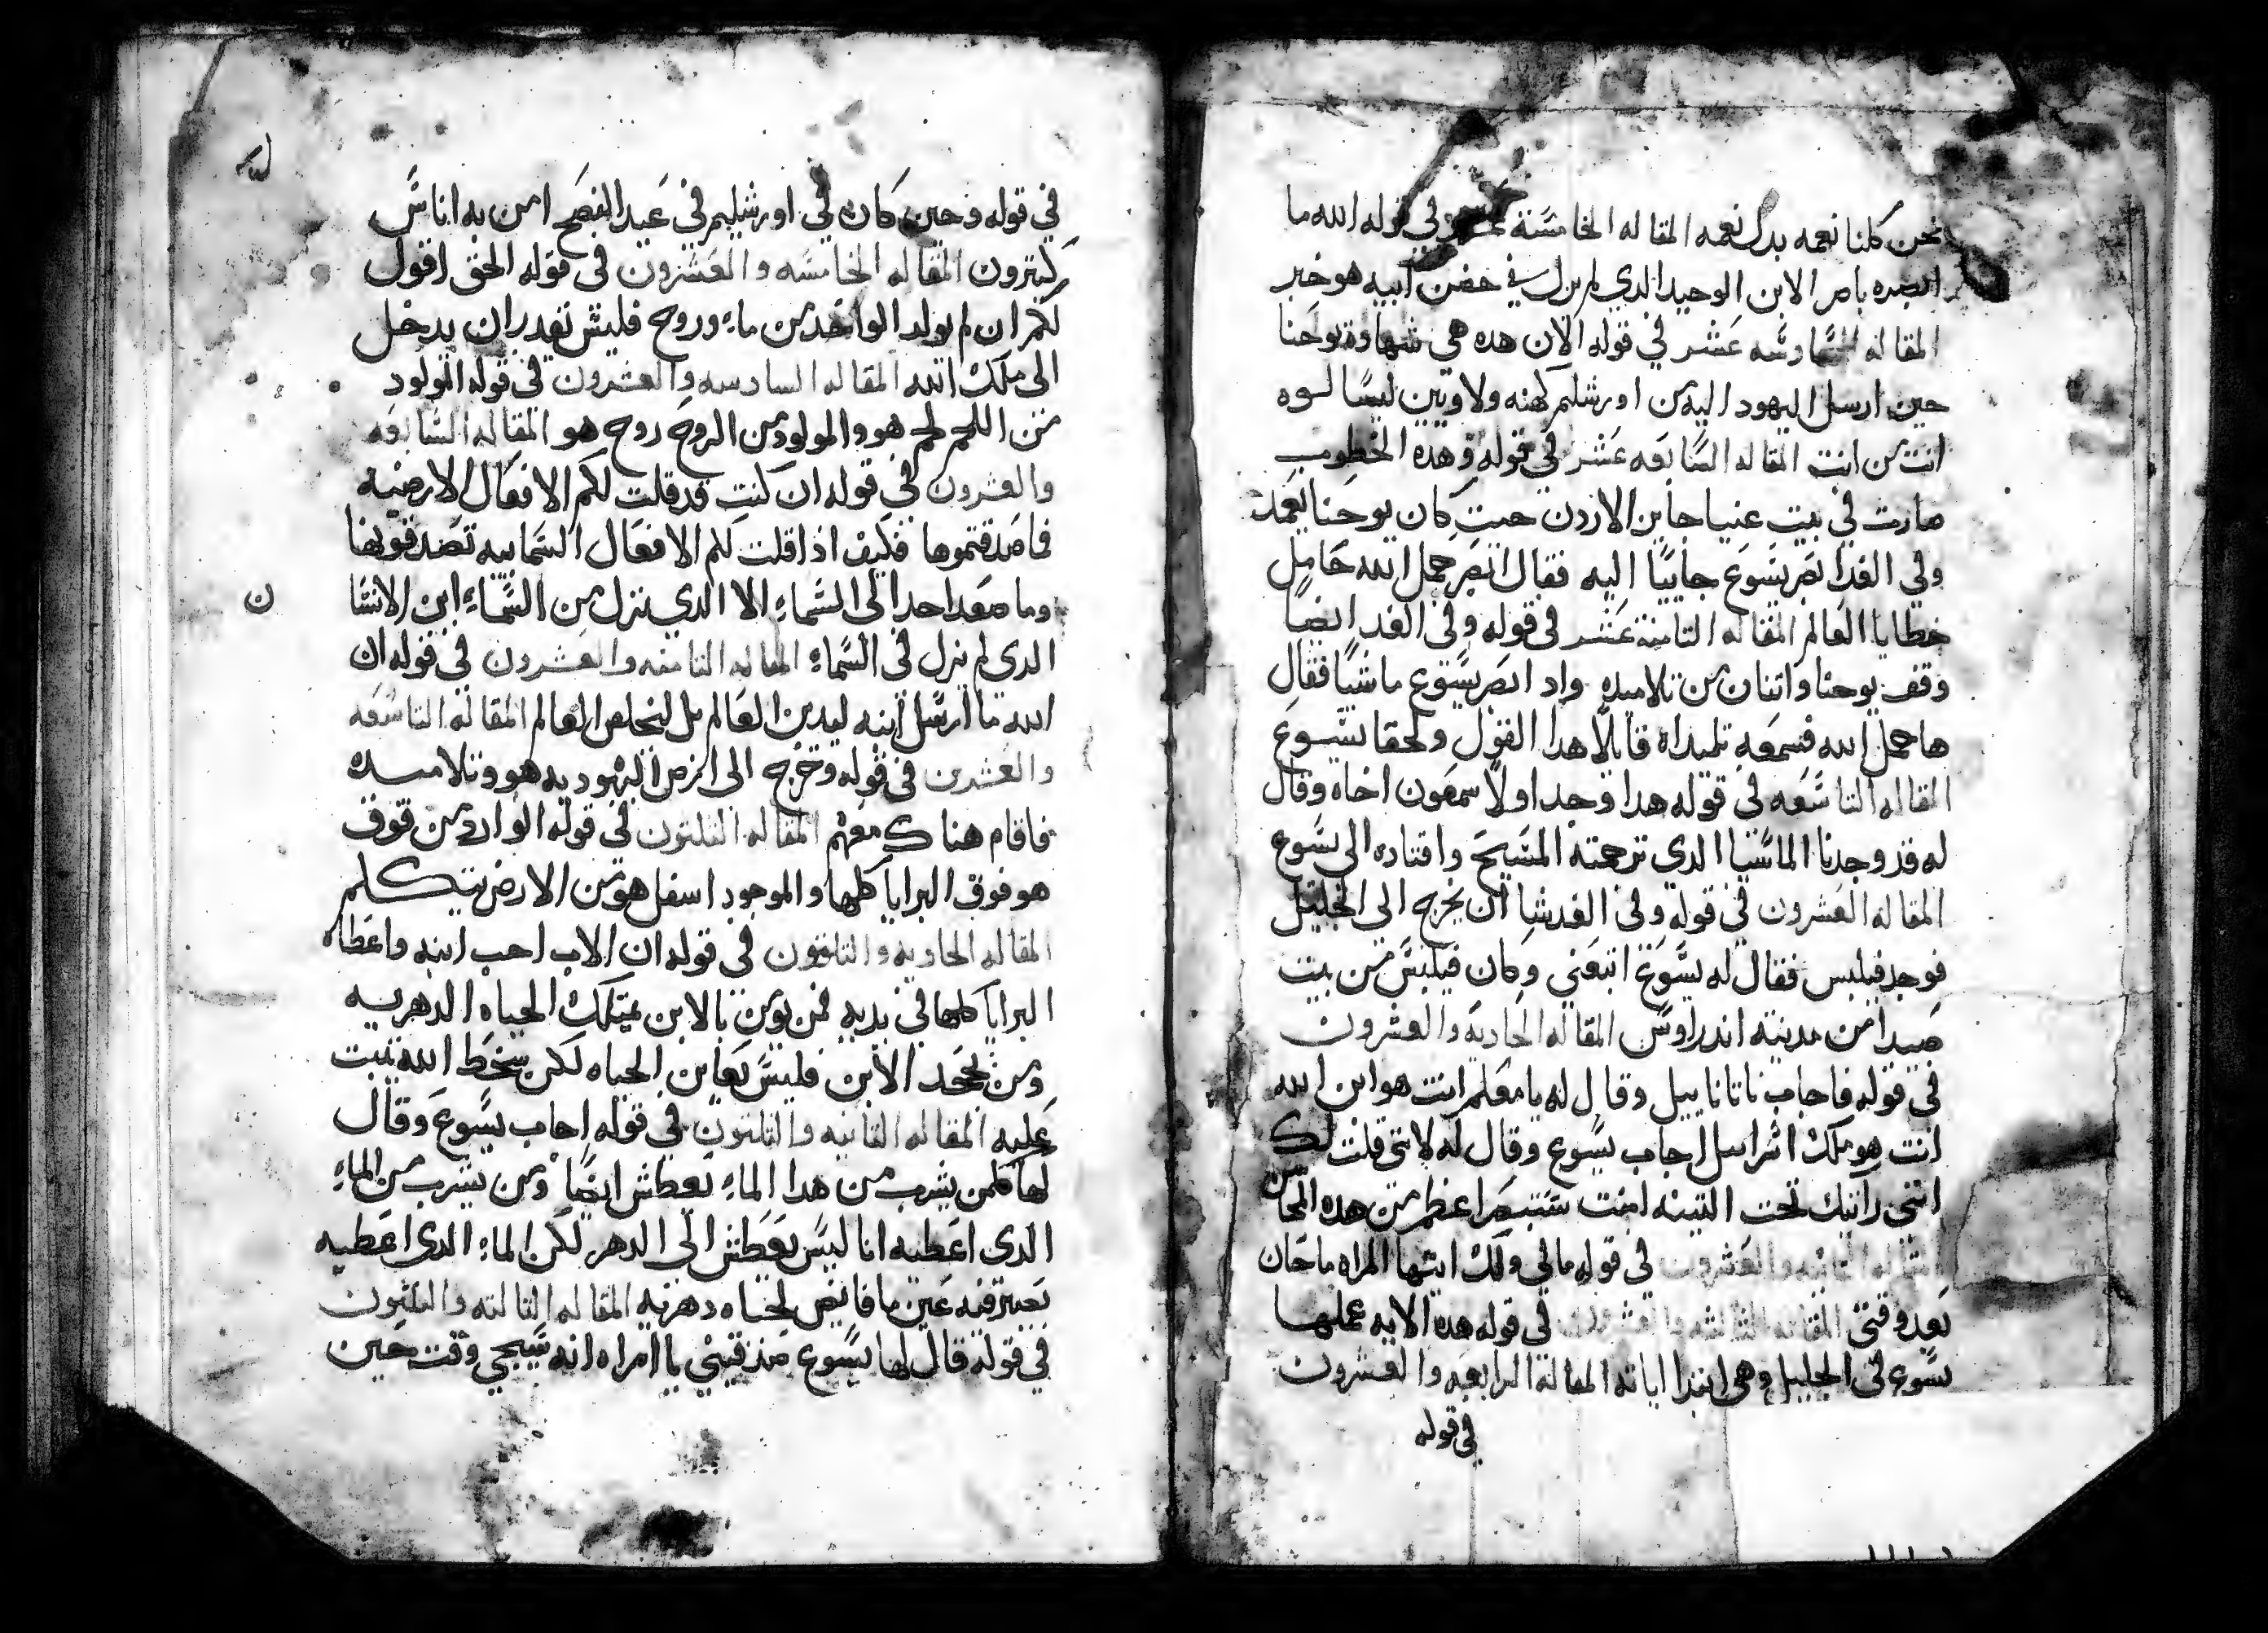 نحن كلنا نعمه بدل نعمه المقاله الخامسة عشر في قوله الله ما
ابصره بامر الابن الوحيد الدي لم يزل في حضن ابيه هو خبر
المقاله السادسه عشر في قوله الان هده هي شهادة يوحنا
حين ارسل اليهود اليه من اورشليم كهنه ولاويين ليسالوه
انت من انت المقاله السابعه عشر في قوله وهده الخطوب
صارت في بيت عنيا جاين الاردن حيت كان يوحنا يعمد
وفي الغد ابصر يسوع جاييا اليه فقال ابصر حمل الله حامل
خطايا العالم المقاله التامنة عشر في قوله وفي الغد ايضا
وقف يوحنا واتنان من تلاميده واد ابصر يسوع ماشيا فقال
ها حمل الله فسمعه تلميداه قايلا هدا القول ولحقا يسوع
المقاله التاسعه في قوله هدا وجد اولا سمعون اخاه وقال
له قد وجدنا الماسيا الدي ترجمته المسيح واقتاده الى يسوع
المقاله العشرون في قوله وفي الغد شا ان يخرج الى الجليل
فوجد فيلبس فقال له يسوع اتبعني وكان فيلبس من بيت
صيدا من مدينته اندراوس المقاله الحادية والعشرون
في قوله فاجاب ناتاناييل وقال له يا معلم انت هو ابن الله
انت هو ملك اسراىيل اجاب يسوع وقال له لانني قلت لك
انني رايتك تحت التينه امنت ستبصر اعظم من هده المحاسن
المقاله التانيه والعشرون في قوله ما لي ولك ايتها المراه ما حان
بعد وقتي المقاله التالته والعشرون في قوله هده الايه عملها
يسوع في الجليل وهي ابتدا اياته المقالة الرابعه والعشرون
في قوله
في قوله وحين كان في اورشليم في عيد الفصح امن به اناس
كتيرون المقاله الخامسه والعشرون في قوله الحق اقول
لكم ان لم يولد الواحد من ماء وروح فليس يقدر ان يدخل
الى ملك الله المقاله السادسه والعشرون في قوله المولود
من اللحم لحم هو والمولود من الروح روح هو المقاله السابعه
والعشرون في قوله ان كنت قد قلت لكم الافعال الارضية
فما صدقتموها فكيف اذا قلت لكم الافعال السماييه تصدقونها
وما صعد احد الى السماء الا الدي نزل من السماء ابن الانسا
ن
الدي لم يزل في السماء المقاله التامنه والعشرون في قوله ان
الله ما ارسل ابنه ليدين العالم بل ليخلص العالم المقاله التاسعه
والعشرين في قوله وخرج الى ارض اليهوديه هو وتلاميده
فاقام هناك معهم المقاله التلتون في قوله الوارد من فوق
هو فوق البرايا كلها والموجود اسفل هو من الارض يتكلم
المقاله الحاديه والتلتون في قوله ان الاب احب ابنه واعطاه
البرايا كلها في يديه فمن يومن بالابن يمتلك الحياه الدهريه
ومن يجحد الابن فليس يعاين الحياه لكن سخط الله يتبت
عليه المقاله التانيه والتلتون في قوله اجاب يسوع وقال
لها كلمن يشرب من هدا الماء يعطش ايضا ومن يشرب من الماء
الدي اعطيه انا ليس يعطش الى الدهر لكن الماء الدي اعطيه
يصير فيه عين ما فايض لحياه دهريه المقاله التالته والتلتون
في قوله قال لها يسوع صدقيني يا امراه انه سيجي وقت حين